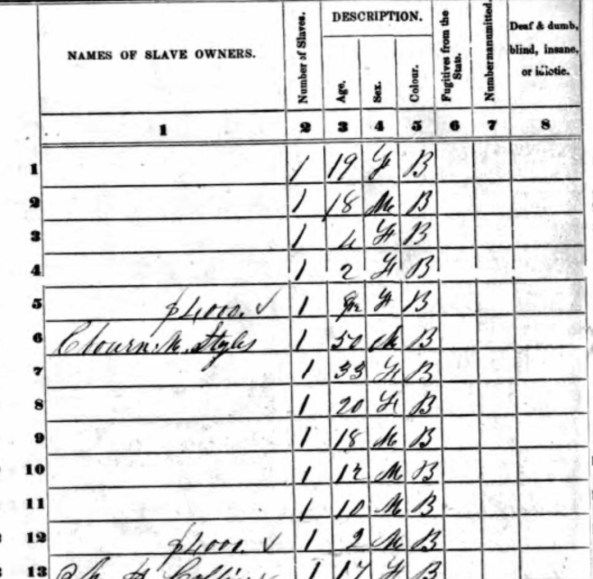 NAMES OF SLAVE OWNERS. Number of Slaves. DESCRIPTION. Fugitives from the State. Number manumitted. Deaf & dumb, blind, insane, or idiotic.
Age. Sex. Colour.
1 2 3 4 5 6 7 8
1 1 19 F B
2 1 18 M B
3 1 4 F B
4 1 2 F B
5 $4,000. ✓ 1 F B
6 M. Styles 1 50 M B
7 1 33 F B
8 1 20 F B
9 1 18 M B
10 1 12 M B
11 1 10 M B
12 $4000. ✓ 1 2 M B
13 1 17 F B